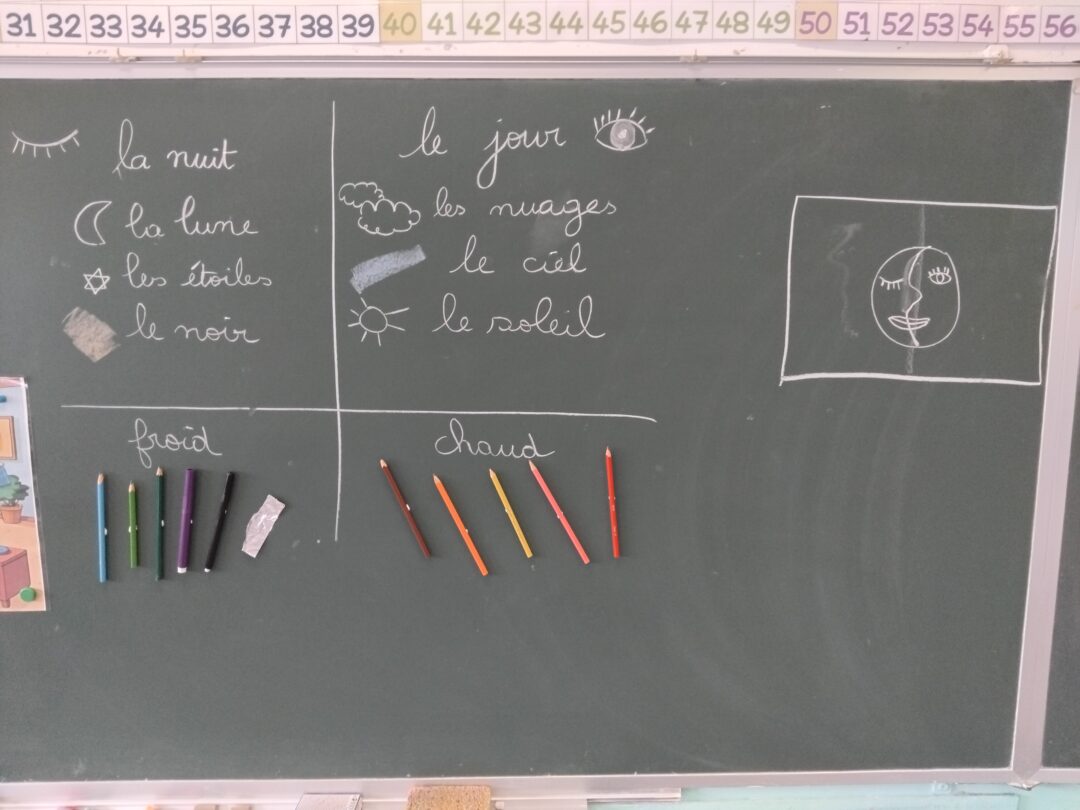 31 32 33 34 35 36 37 38 39 40 41 42 43 44 45 46 47 48 49 50 51 52 53 54 55 56
la nuit
la lune
les étoiles
le noir
le jour
les nuages
le ciel
le soleil
froid
chaud